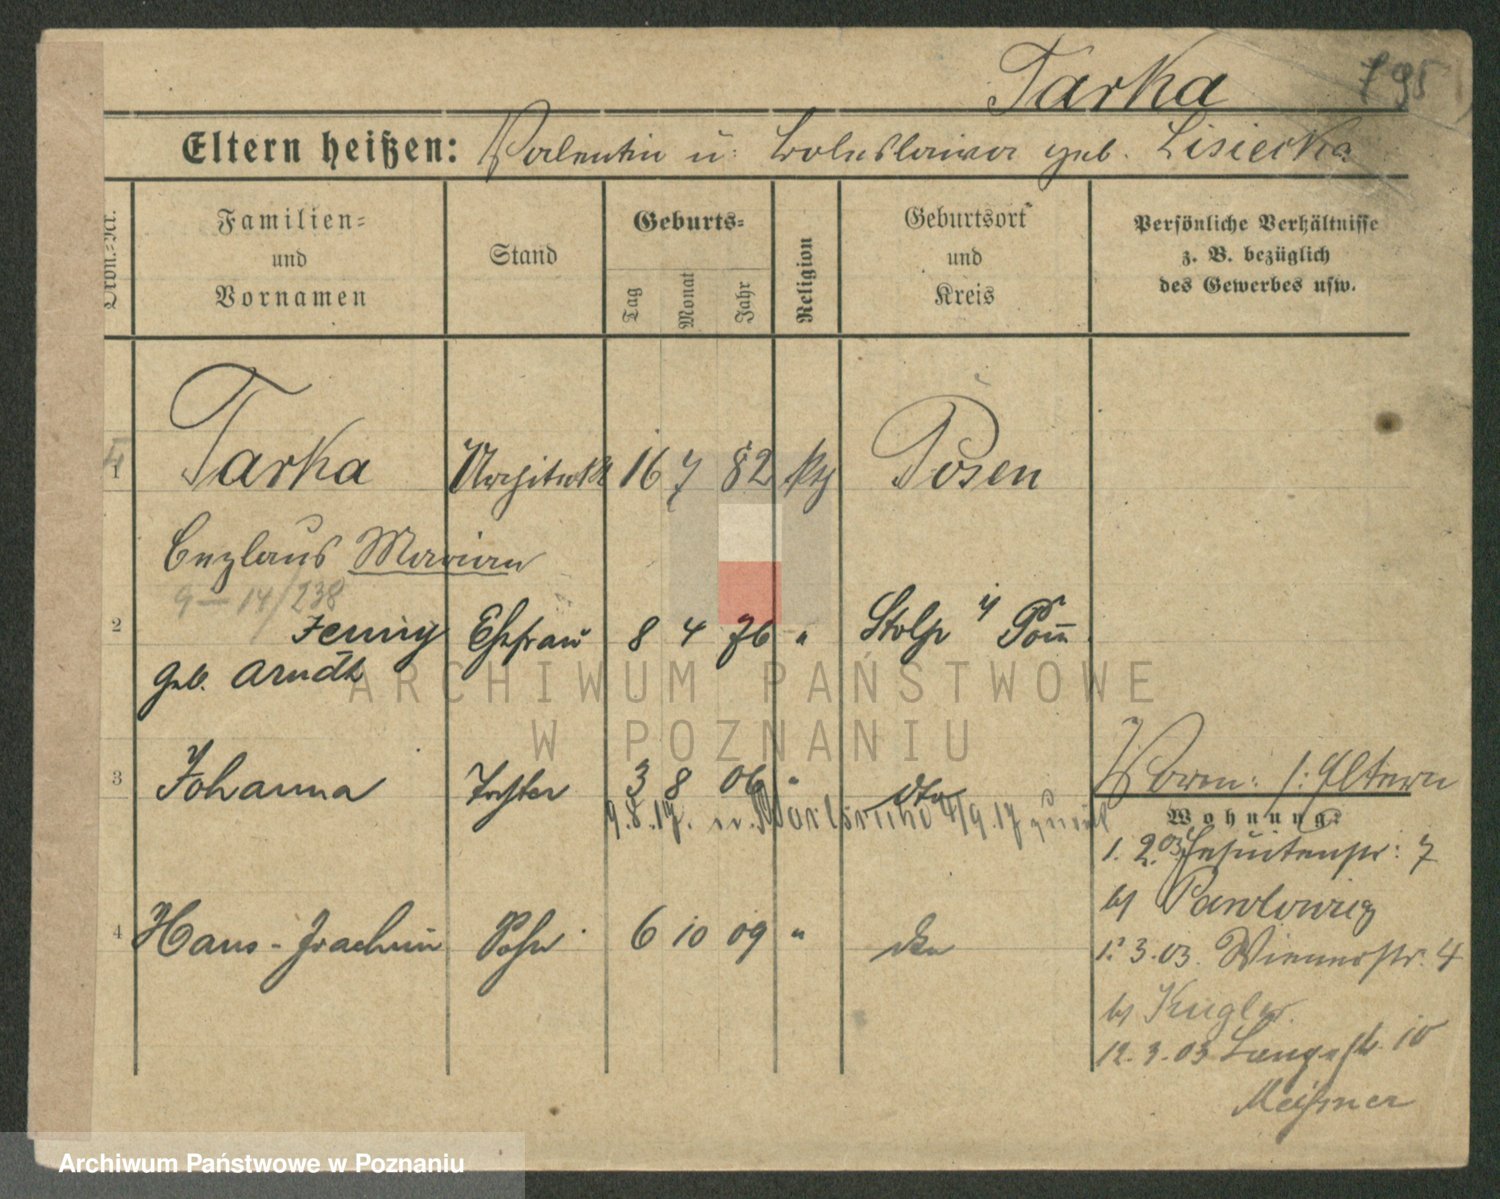 Tarka
795
Eltern heißen: Valentin u: Boleslawa geb. Lisiecka
Ordn.-Nr.
Familien-
und
Vornamen
Stand
Geburts-
Tag
Monat
Jahr
Religion
Geburtsort
und
Kreis
Persönliche Verhältnisse
z. B. bezüglich
des Gewerbes usw.
1 Tarka Architekt 16 7 82 kth Posen
Cezlaus Marian
9-14/238
2 Jenny Ehefrau 8 4 76 " Stolp i/ Pom
geb. Arndt
3 Johanna Tochter 3 8 06 " dto
9.8.17. Karlsruhe 4/9.17 zurück
4 Hans-Joachim Sohn 6 10 09 " dto
Vorm: s: Eltern
Wohnung:
1. 2.03 Jesuitenstr: 7
b/ Pawlowicz
1. 3.03. Wienerstr. 4
b/ Kugler.
12.3.03 Langestr. 10
Meißner
ARCHIWUM PAŃSTWOWE
W POZNANIU
Archiwum Państwowe w Poznaniu